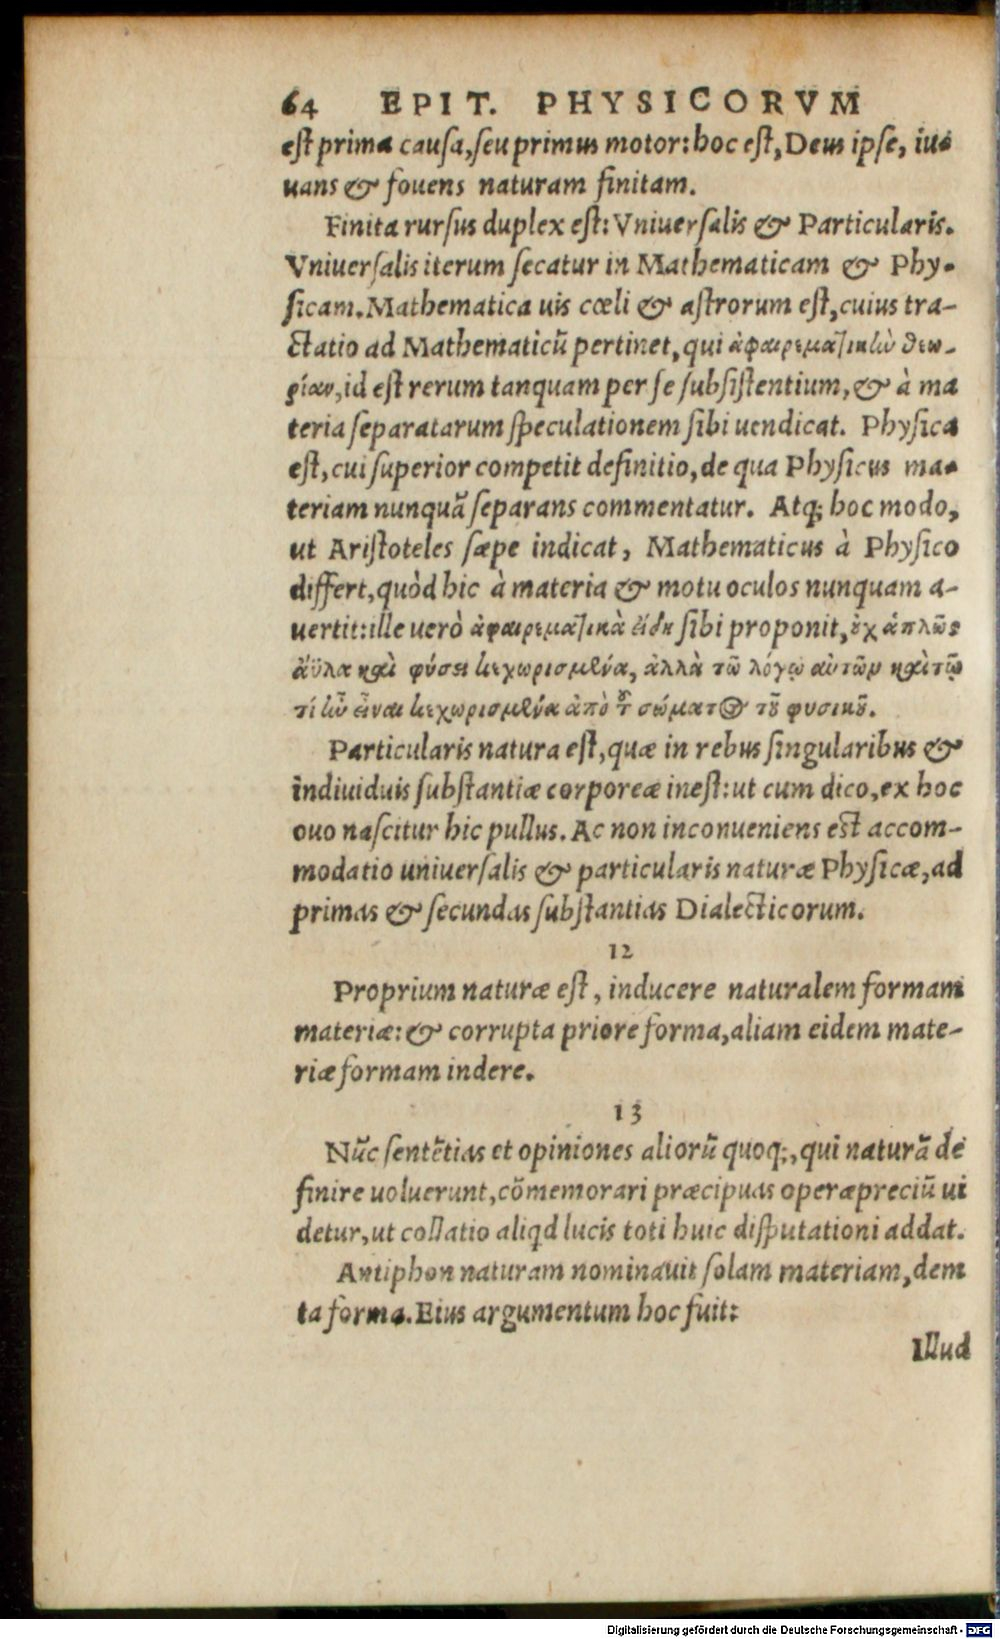 64 EPIT. PHYSICORVM
est prima causa, seu primus motor: hoc est, Deus ipse, iu-
uans & fouens naturam finitam.
Finita rursus duplex est: Vniuersalis & Particularis.
Vniuersalis iterum secatur in Mathematicam & Phy-
sicam. Mathematica uis cœli & astrorum est, cuius tra-
ctatio ad Mathematicũ pertinet, qui ἀφαιρεματικὴν θεω-
ρίαν, id est rerum tanquam per se subsistentium, & à ma
teria separatarum speculationem sibi uendicat. Physica
est, cui superior competit definitio, de qua Physicus ma-
teriam nunquã separans commentatur. Atq; hoc modo,
ut Aristoteles sæpe indicat, Mathematicus à Physico
differt, quòd hic à materia & motu oculos nunquam a-
uertit: ille uerò ἀφαιρεματικὰ εἴδη sibi proponit, οὐχ ἁπλῶς
ἄϋλα καὶ φύσει κεχωρισμένα, ἀλλὰ τῷ λόγῳ αὐτῶν καὶ τῷ
τί ἦν εἶναι κεχωρισμένα ἀπὸ τοῦ σώματος τοῦ φυσικοῦ.
Particularis natura est, quæ in rebus singularibus &
indiuiduis substantiæ corporeæ inest: ut cum dico, ex hoc
ouo nascitur hic pullus. Ac non inconueniens est accom-
modatio uniuersalis & particularis naturæ Physicæ, ad
primas & secundas substantias Dialecticorum.
12
Proprium naturæ est, inducere naturalem formam
materiæ: & corrupta priore forma, aliam eidem mate-
riæ formam indere.
13
Nũc sentẽtias et opiniones aliorũ quoq;, qui naturã de
finire uoluerunt, cõmemorari præcipuas operæpreciũ ui
detur, ut collatio aliqd lucis toti huic disputationi addat.
Antiphon naturam nominauit solam materiam, dem
ta forma. Eius argumentum hoc fuit:
Illud
Digitalisierung gefördert durch die Deutsche Forschungsgemeinschaft - DFG